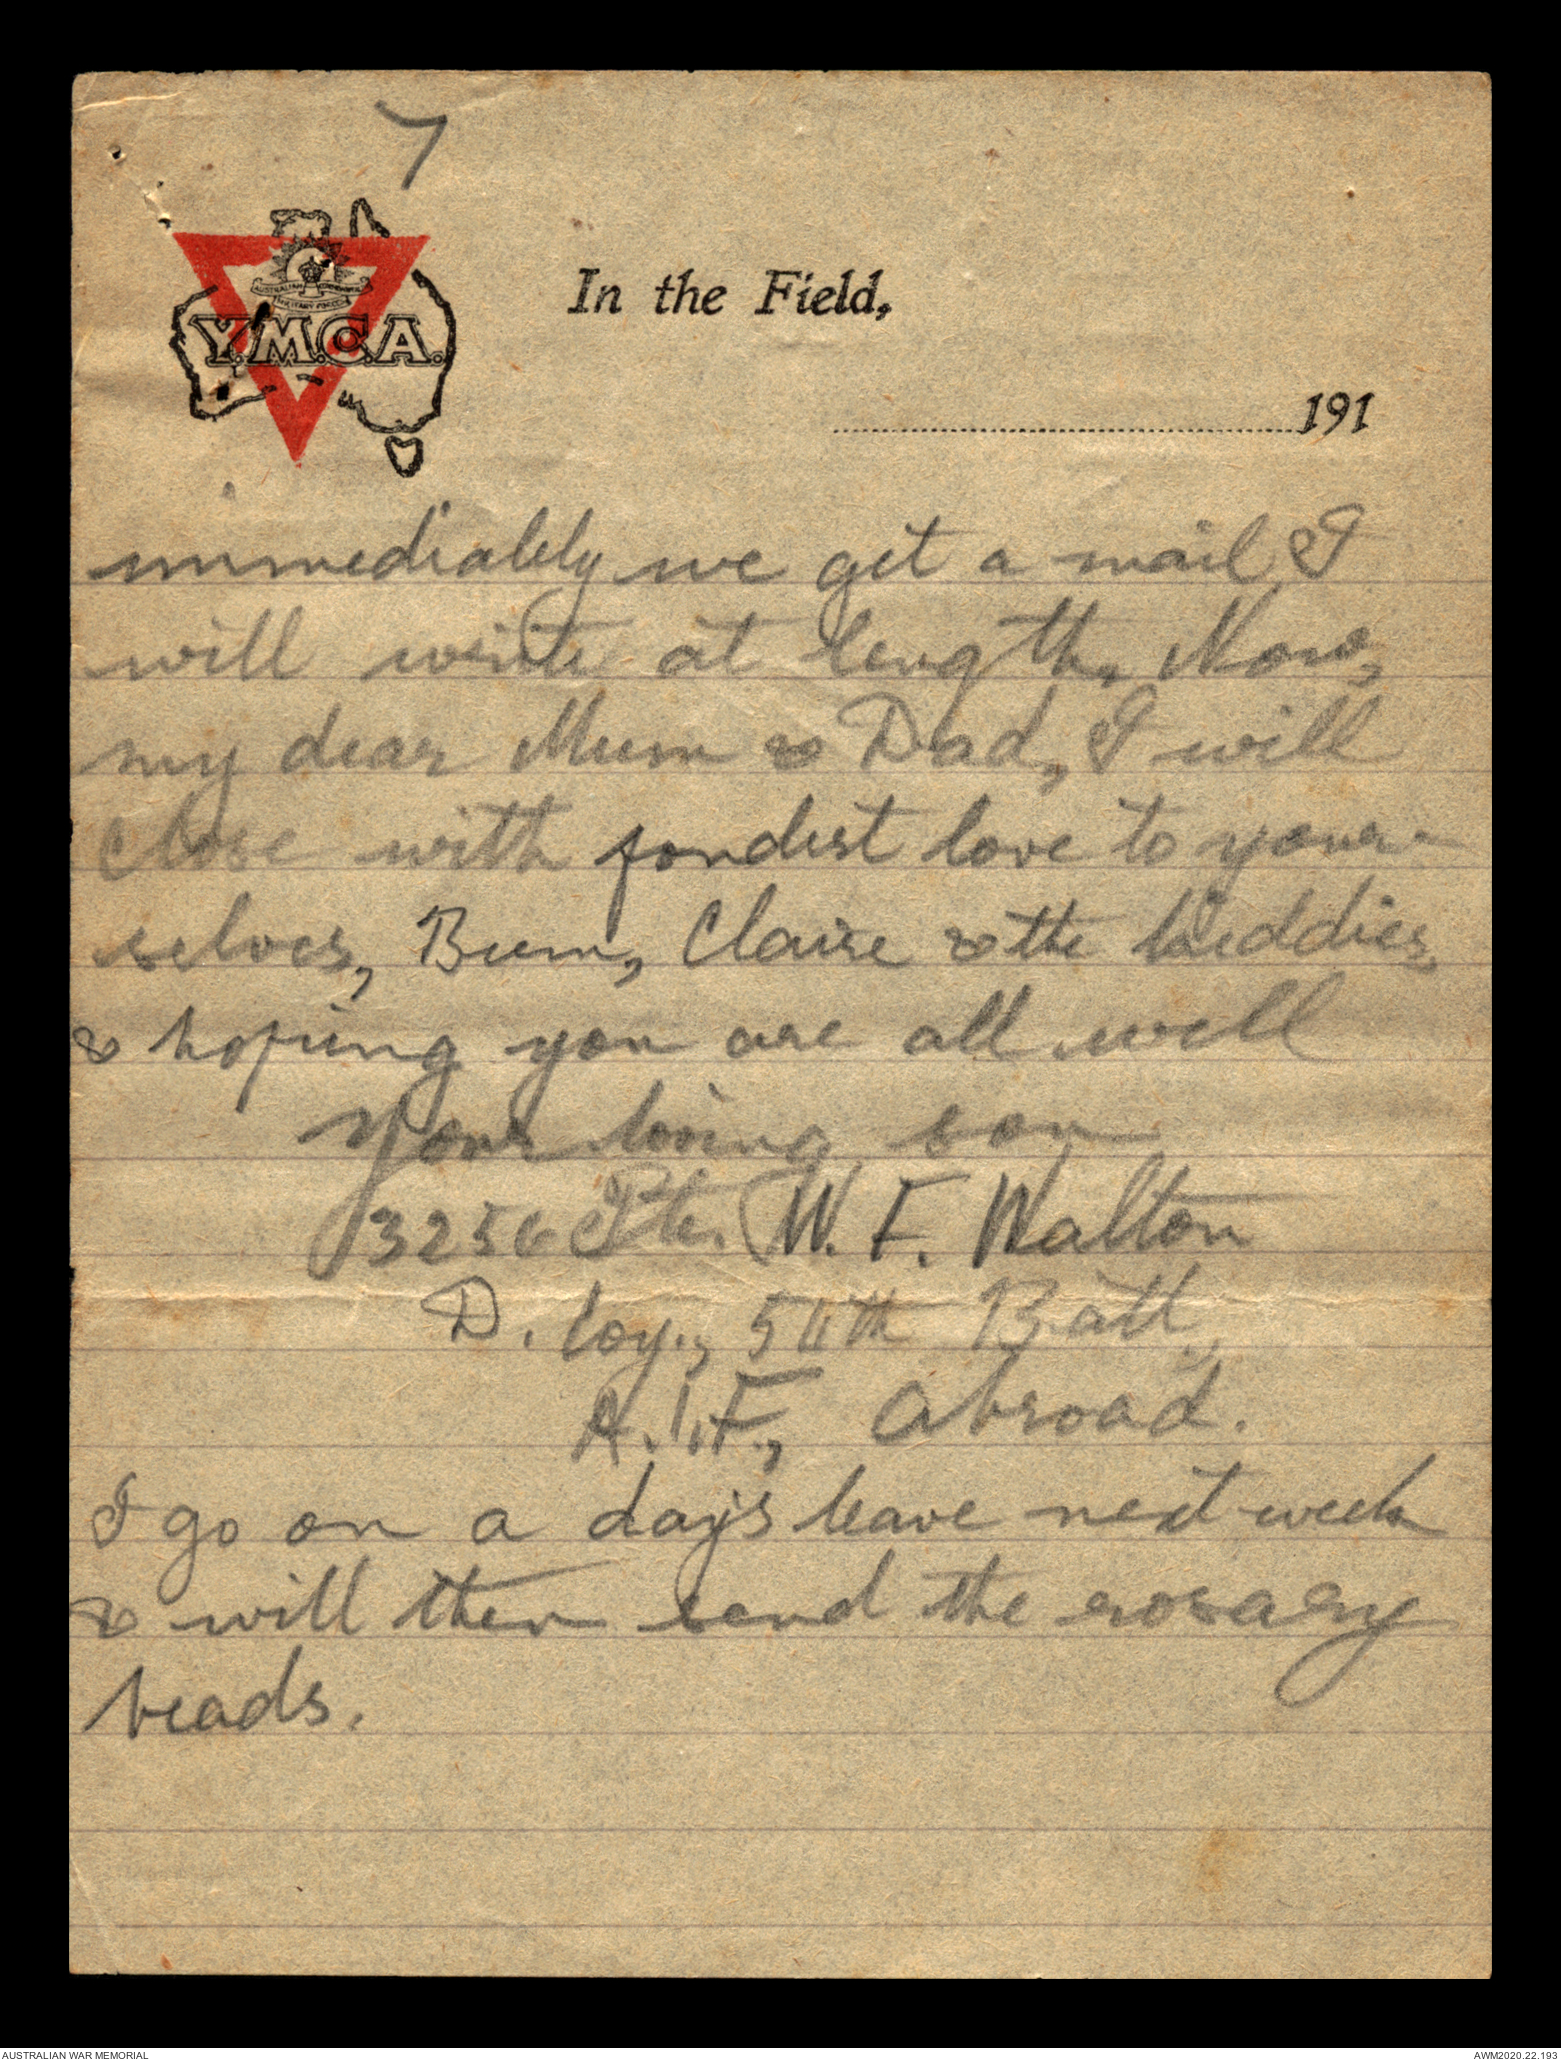 7
AUSTRALIAN
MILITARY FORCES
Y.M.C.A.
In the Field,
191
immediately we get a mail I
will write at length. Now,
my dear Mum & Dad, I will
close with fondest love to your-
selves, Bum, Claire & the kiddies,
& hoping you are all well
Your loving son
3256 Pte. W. F. Walton
D. Coy., 54th Batt.,
A.I.F., Abroad.
I go on a day's leave next week
& will then send the rosary
beads.
AUSTRALIAN WAR MEMORIAL
AWM2020.22.193